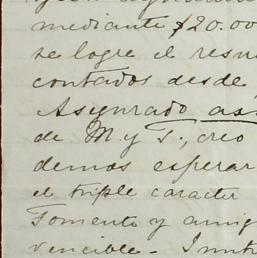 mediante $20.00
se logre el resu
contados desde
Asegurado as
de M y T., creo
demos esperar
el triple caracter
Fomento y amig
vencible -